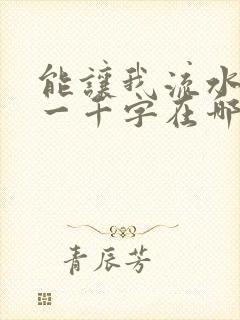 能讓我流水
一千字在哪
青辰芳